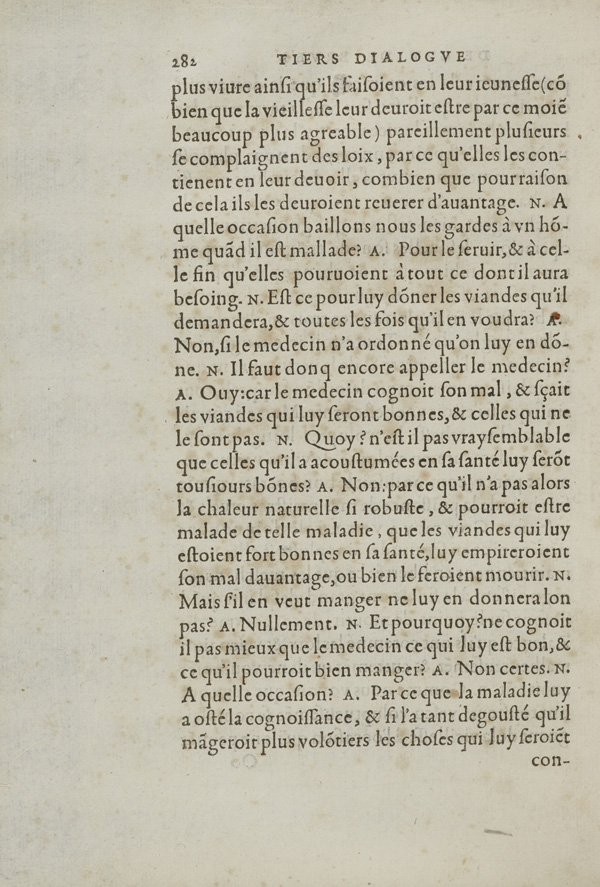 282 TIERS DIALOGVE
plus viure ainſi qu'ils faiſoient en leur ieuneſſe (cõ
bien que la vieilleſſe leur deuroit eſtre par ce moiẽ
beaucoup plus agreable) pareillement pluſieurs
ſe complaignent des loix, par ce qu'elles les con-
tienent en leur deuoir, combien que pour raiſon
de cela ils les deuroient reuerer d'auantage. N. A
quelle occaſion baillons nous les gardes à vn hõ-
me quãd il eſt mallade? A. Pour le ſeruir, & à cel-
le fin qu'elles pouruoient à tout ce dont il aura
beſoing. N. Eſt ce pour luy dõner les viandes qu'il
demandera, & toutes les fois qu'il en voudra? A.
Non, ſi le medecin n'a ordonné qu'on luy en dõ-
ne. N. Il faut donq encore appeller le medecin?
A. Ouy: car le medecin cognoit ſon mal, & ſçait
les viandes qui luy ſeront bonnes, & celles qui ne
le ſont pas. N. Quoy? n'eſt il pas vrayſemblable
que celles qu'il a acouſtumées en ſa ſanté luy ſerõt
touſiours bõnes? A. Non: par ce qu'il n'a pas alors
la chaleur naturelle ſi robuſte, & pourroit eſtre
malade de telle maladie, que les viandes qui luy
eſtoient fort bonnes en ſa ſanté, luy empireroient
ſon mal dauantage, ou bien le feroient mourir. N.
Mais ſ'il en veut manger ne luy en donnera lon
pas? A. Nullement. N. Et pourquoy? ne cognoit
il pas mieux que le medecin ce qui luy eſt bon, &
ce qu'il pourroit bien manger? A. Non certes. N.
A quelle occaſion? A. Par ce que la maladie luy
a oſté la cognoiſſance, & ſi l'a tant degouſté qu'il
mãgeroit plus volõtiers les choſes qui luy ſeroiẽt
con-